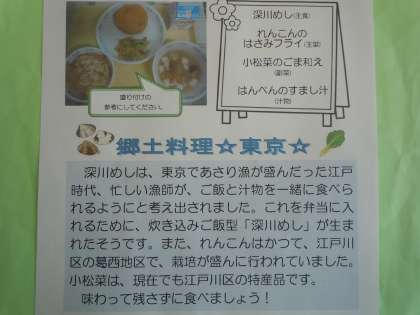 深川めし(主食)
れんこんの
はさみフライ(主菜)
小松菜のごま和え
(副菜)
はんぺんのすまし汁
(汁物)
盛り付けの
参考にしてください。
郷土料理☆東京☆
深川めしは、東京であさり漁が盛んだった江戸
時代、忙しい漁師が、ご飯と汁物を一緒に食べら
れるようにと考え出されました。これを弁当に入
れるために、炊き込みご飯型「深川めし」が生ま
れたそうです。また、れんこんはかつて、江戸川
区の葛西地区で、栽培が盛んに行われていました。
小松菜は、現在でも江戸川区の特産品です。
味わって残さずに食べましょう！